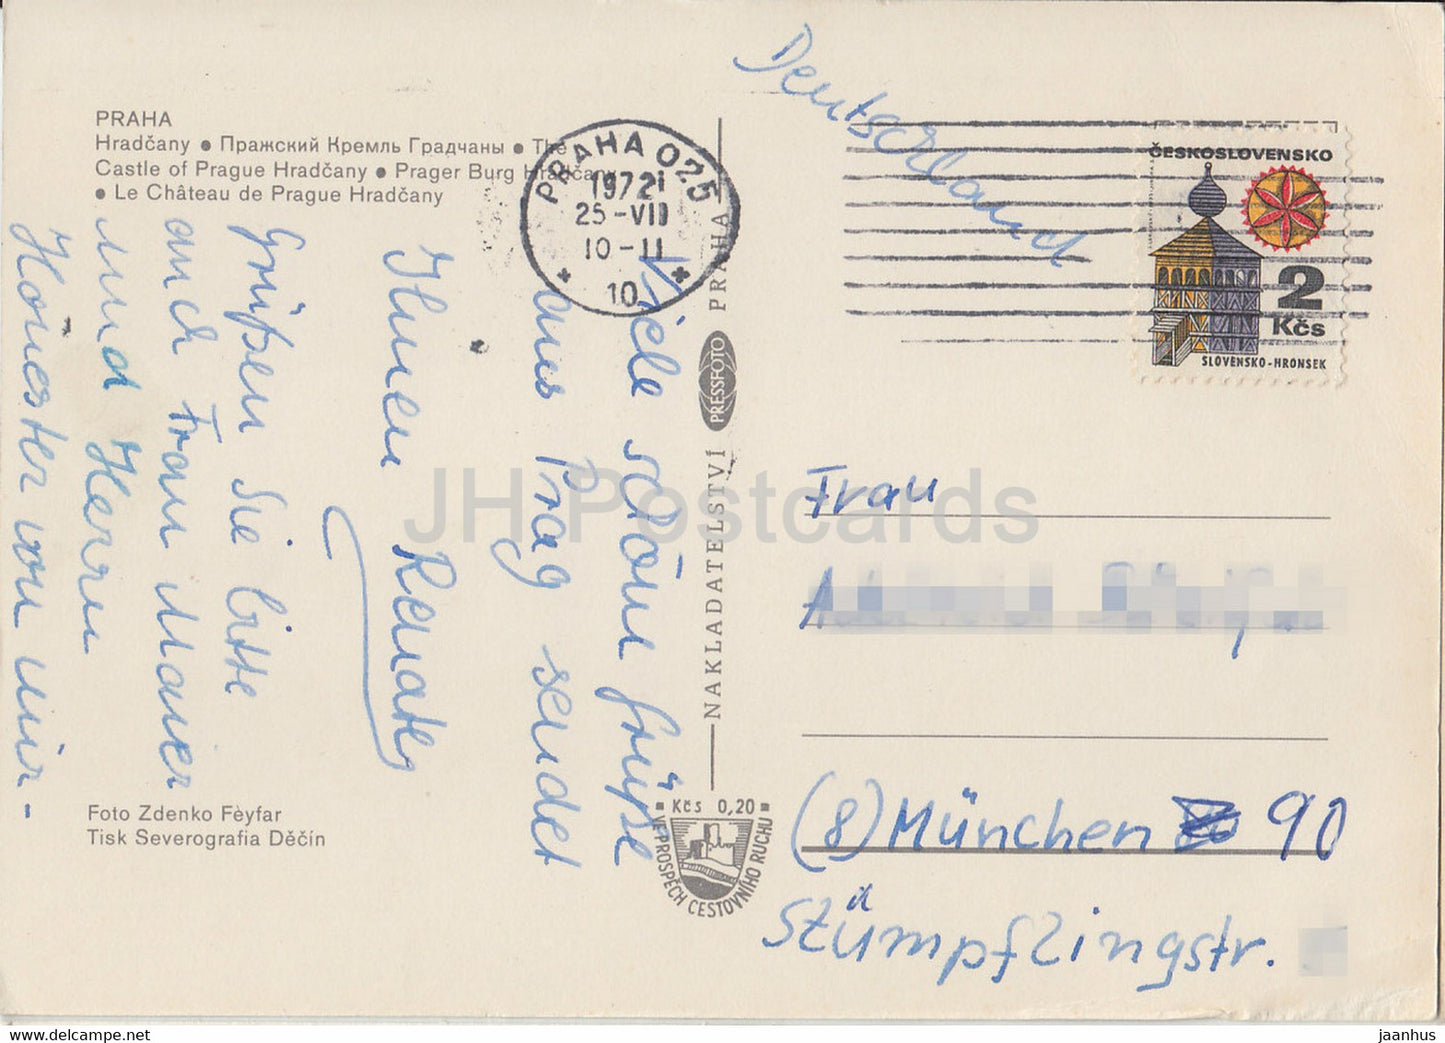 PRAHA
Hradčany ● Пражский Кремль Градчаны ● The
Castle of Prague Hradčany ● Prager Burg Hradčany
● Le Château de Prague Hradčany
Viele schöne Grüße
aus Prag sendet
Ihnen Renate
Grüßen Sie bitte
auch Frau Maier
und Herrn
von mir -
Foto Zdenko Fèyfar
Tisk Severografia Děčín
PRAHA 025
1972
25-VII
10-11
* 10 *
NAKLADATELSTVÍ PRESSFOTO PRAHA
Kčs 0,20
VE PROSPĚCH CESTOVNÍHO RUCHU
Deutschland
ČESKOSLOVENSKO
2
Kčs
SLOVENSKO-HRONSEK
Frau
(8) München 90
Stümpflingstr.
JH Postcards
www.delcampe.net
jaanhus